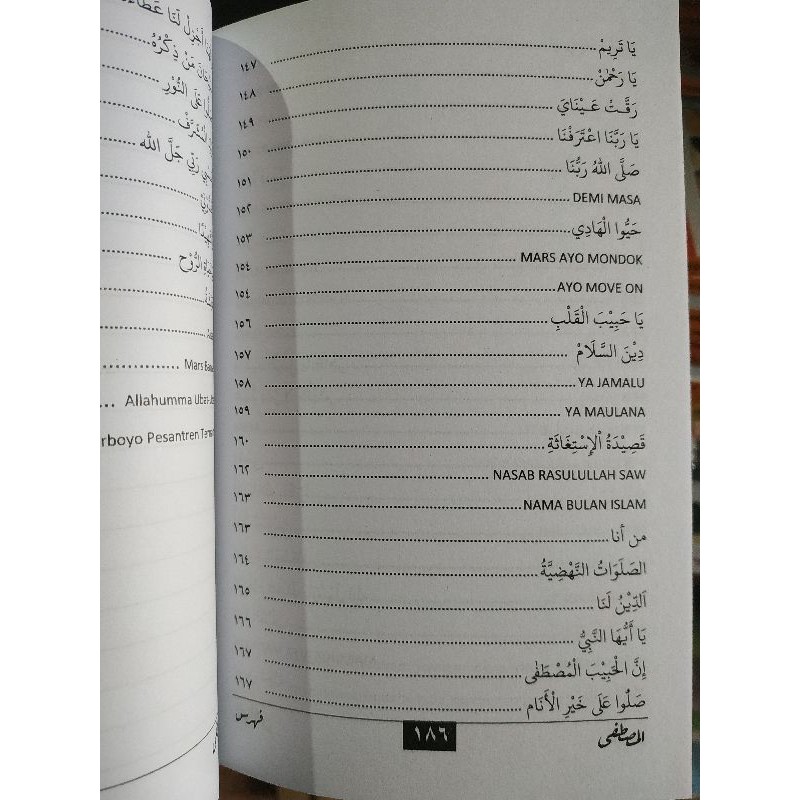 يَا تَرِيمْ ........ ١٤٧
يَا رَحْمٰنْ ........ ١٤٨
رَقَّتْ عَيْنَايَ ........ ١٤٩
يَا رَبَّنَا اعْتَرَفْنَا ........ ١٥٠
صَلَّى اللهُ رَبُّنَا ........ ١٥١
DEMI MASA ........ ١٥٢
حَيُّوا الْهَادِي ........ ١٥٣
MARS AYO MONDOK ........ ١٥٤
AYO MOVE ON ........ ١٥٤
يَا حَبِيْبَ الْقَلْبِ ........ ١٥٦
دِيْنَ السَّلَامْ ........ ١٥٧
YA JAMALU ........ ١٥٨
YA MAULANA ........ ١٥٩
قَصِيْدَةُ الْإِسْتِغَاثَةِ ........ ١٦٠
NASAB RASULULLAH SAW ........ ١٦٢
NAMA BULAN ISLAM ........ ١٦٣
من أنا ........ ١٦٣
الصَلَوَاتُ النَّهْضِيَّةُ ........ ١٦٤
اَلدِّيْنُ لَنَا ........ ١٦٥
يَا أَيُّهَا النَّبِيُّ ........ ١٦٦
إِنَّ الْحَبِيْبَ الْمُصْطَفٰى ........ ١٦٧
صَلُّوا عَلَى خَيْرِ الْأَنَام ........ ١٦٧
المصطفى ١٨٦ فهرس
أَجْزِلْ لَنَا
مَنْ ذِكْرُهُ
عَلَى النُّوْرِ
رَبِّي جَلَّ الله
الرُّوْح
Mars
Allahumma
Pesantren